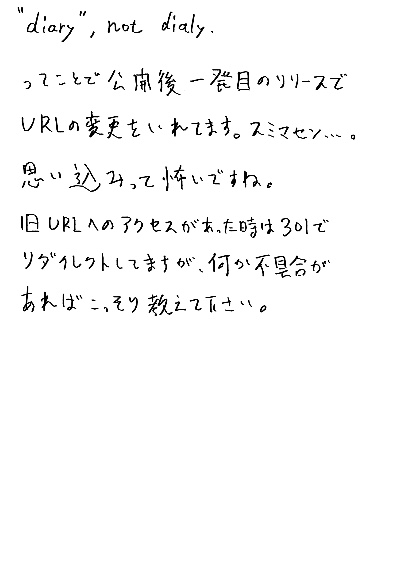 "diary", not dialy.
ってことで公開後一発目のリリースで
URLの変更をいれてます。スミマセン...。
思い込みって怖いですね。
旧URLへのアクセスがあった時は301で
リダイレクトしてますが、何か不具合が
あればこっそり教えて下さい。